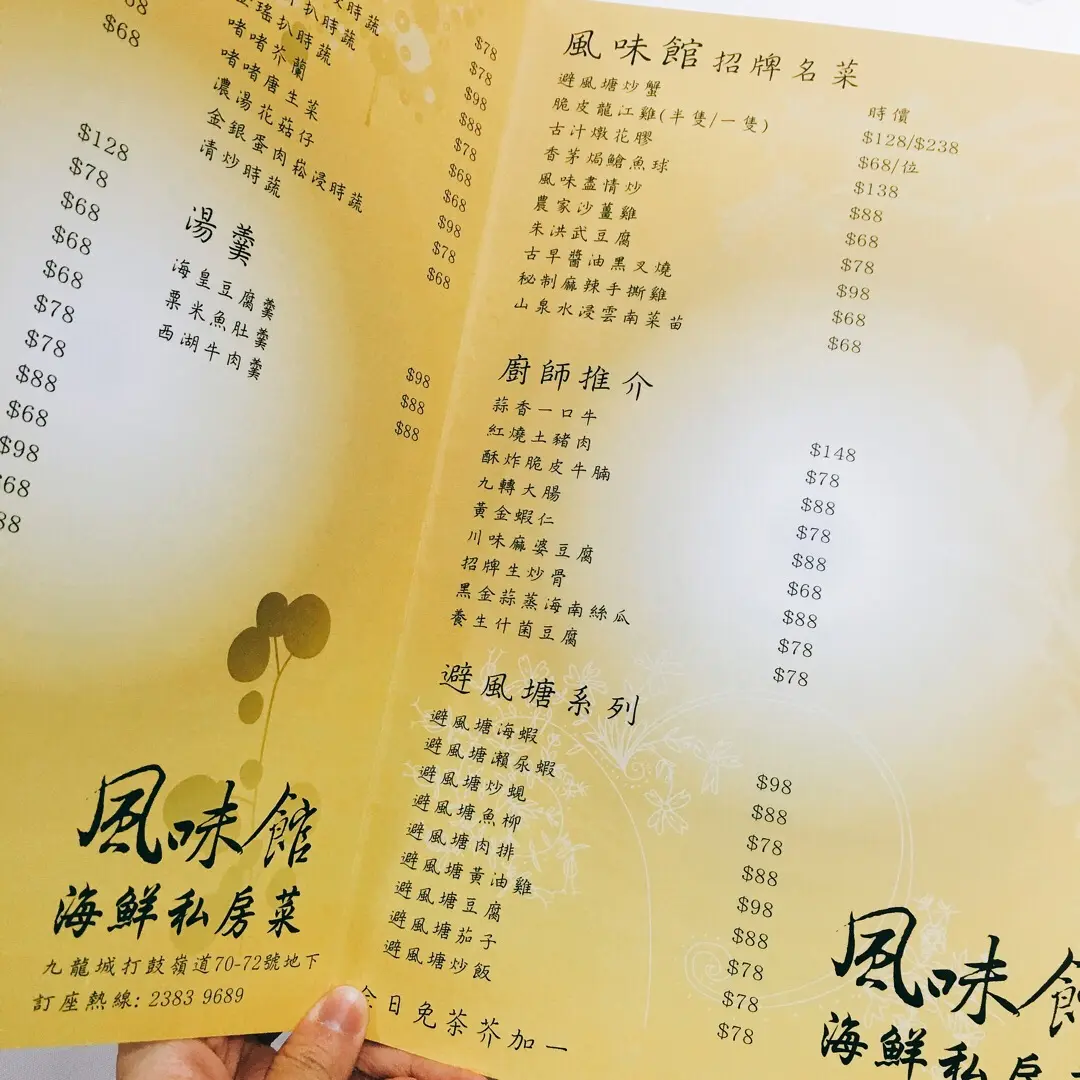 $68
$128
$78
$68
$68
$68
$78
$78
$88
$68
$98
$68
$88
扒時蔬
瑤扒時蔬
啫啫芥蘭
啫啫唐生菜
濃湯花菇仔
金銀蛋肉崧浸時蔬
清炒時蔬
$78
$78
$98
$88
$78
$68
$68
$98
$78
$68
湯羹
海皇豆腐羹 $98
粟米魚肚羹 $88
西湖牛肉羹 $88
風味館
海鮮私房菜
九龍城打鼓嶺道70-72號地下
訂座熱線: 2383 9689
風味館招牌名菜
避風塘炒蟹 時價
脆皮龍江雞(半隻/一隻) $128/$238
古汁燉花膠 $68/位
香茅焗鱠魚球 $138
風味盡情炒 $88
農家沙薑雞 $68
朱洪武豆腐 $78
古早醬油黑叉燒 $98
秘制麻辣手撕雞 $68
山泉水浸雲南菜苗 $68
廚師推介
蒜香一口牛 $148
紅燒土豬肉 $78
酥炸脆皮牛腩 $88
九轉大腸 $78
黃金蝦仁 $88
川味麻婆豆腐 $68
招牌生炒骨 $88
黑金蒜蒸海南絲瓜 $78
養生什菌豆腐 $78
避風塘系列
避風塘海蝦 $98
避風塘瀨尿蝦 $88
避風塘炒蜆 $78
避風塘魚柳 $88
避風塘肉排 $98
避風塘黃油雞 $88
避風塘豆腐 $78
避風塘茄子 $78
避風塘炒飯 $78
全日免茶芥加一
風味館
海鮮私房